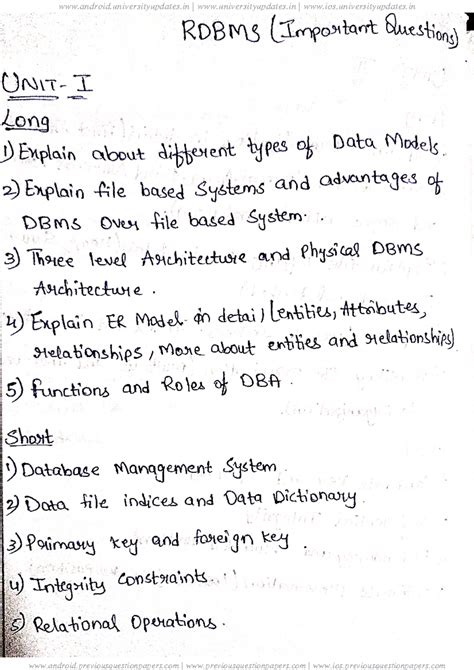 www.android.universityupdates.in | www.universityupdates.in | www.ios.universityupdates.in
RDBMS (Important Questions)
UNIT-I
Long
1) Explain about different types of Data Models.
2) Explain file based Systems and advantages of
DBMS over file based System.
3) Three level Architecture and Physical DBMS
Architecture.
4) Explain ER Model in detail (entities, Attributes,
relationships, More about entities and relationships)
5) functions and Roles of DBA.
Short
1) Database Management System.
2) Data file indices and Data Dictionary.
3) Primary key and foreign key.
4) Integrity Constraints.
5) Relational Operations.
www.android.previousquestionpapers.com | www.previousquestionpapers.com | www.ios.previousquestionpapers.com